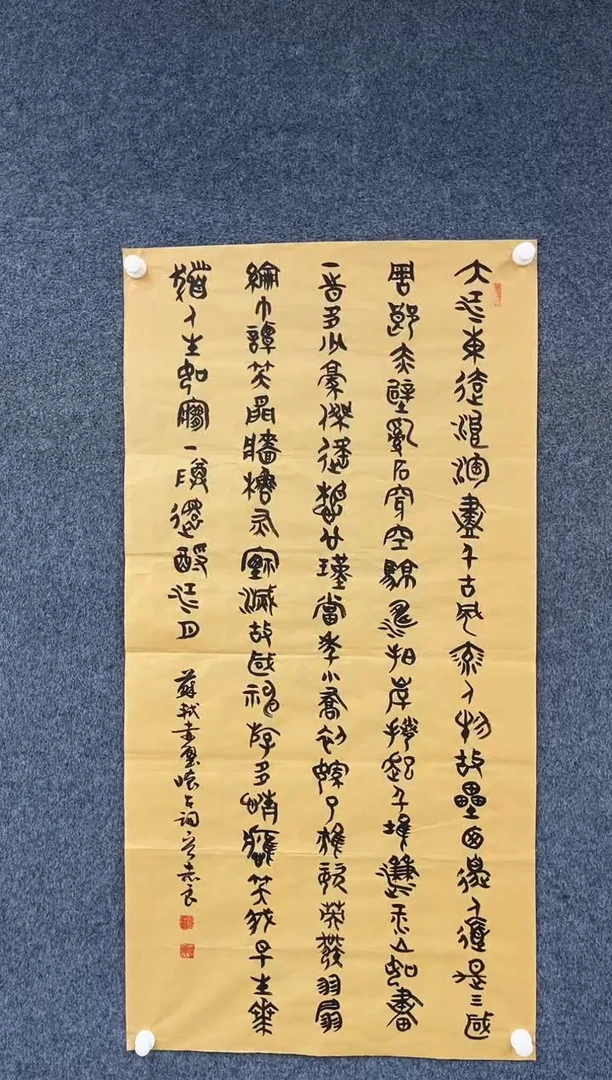 大江東去浪淘盡千古風流人物故壘西邊人道是三國
周郎赤壁亂石穿空驚濤拍岸捲起千堆雪江山如畫
一時多少豪傑遙想公瑾當年小喬初嫁了雄姿英發羽扇
綸巾譚笑間檣櫓灰煙滅故國神游多情應笑我早生華
髮人生如夢一尊還酹江月
蘇軾赤壁懷古詞志良